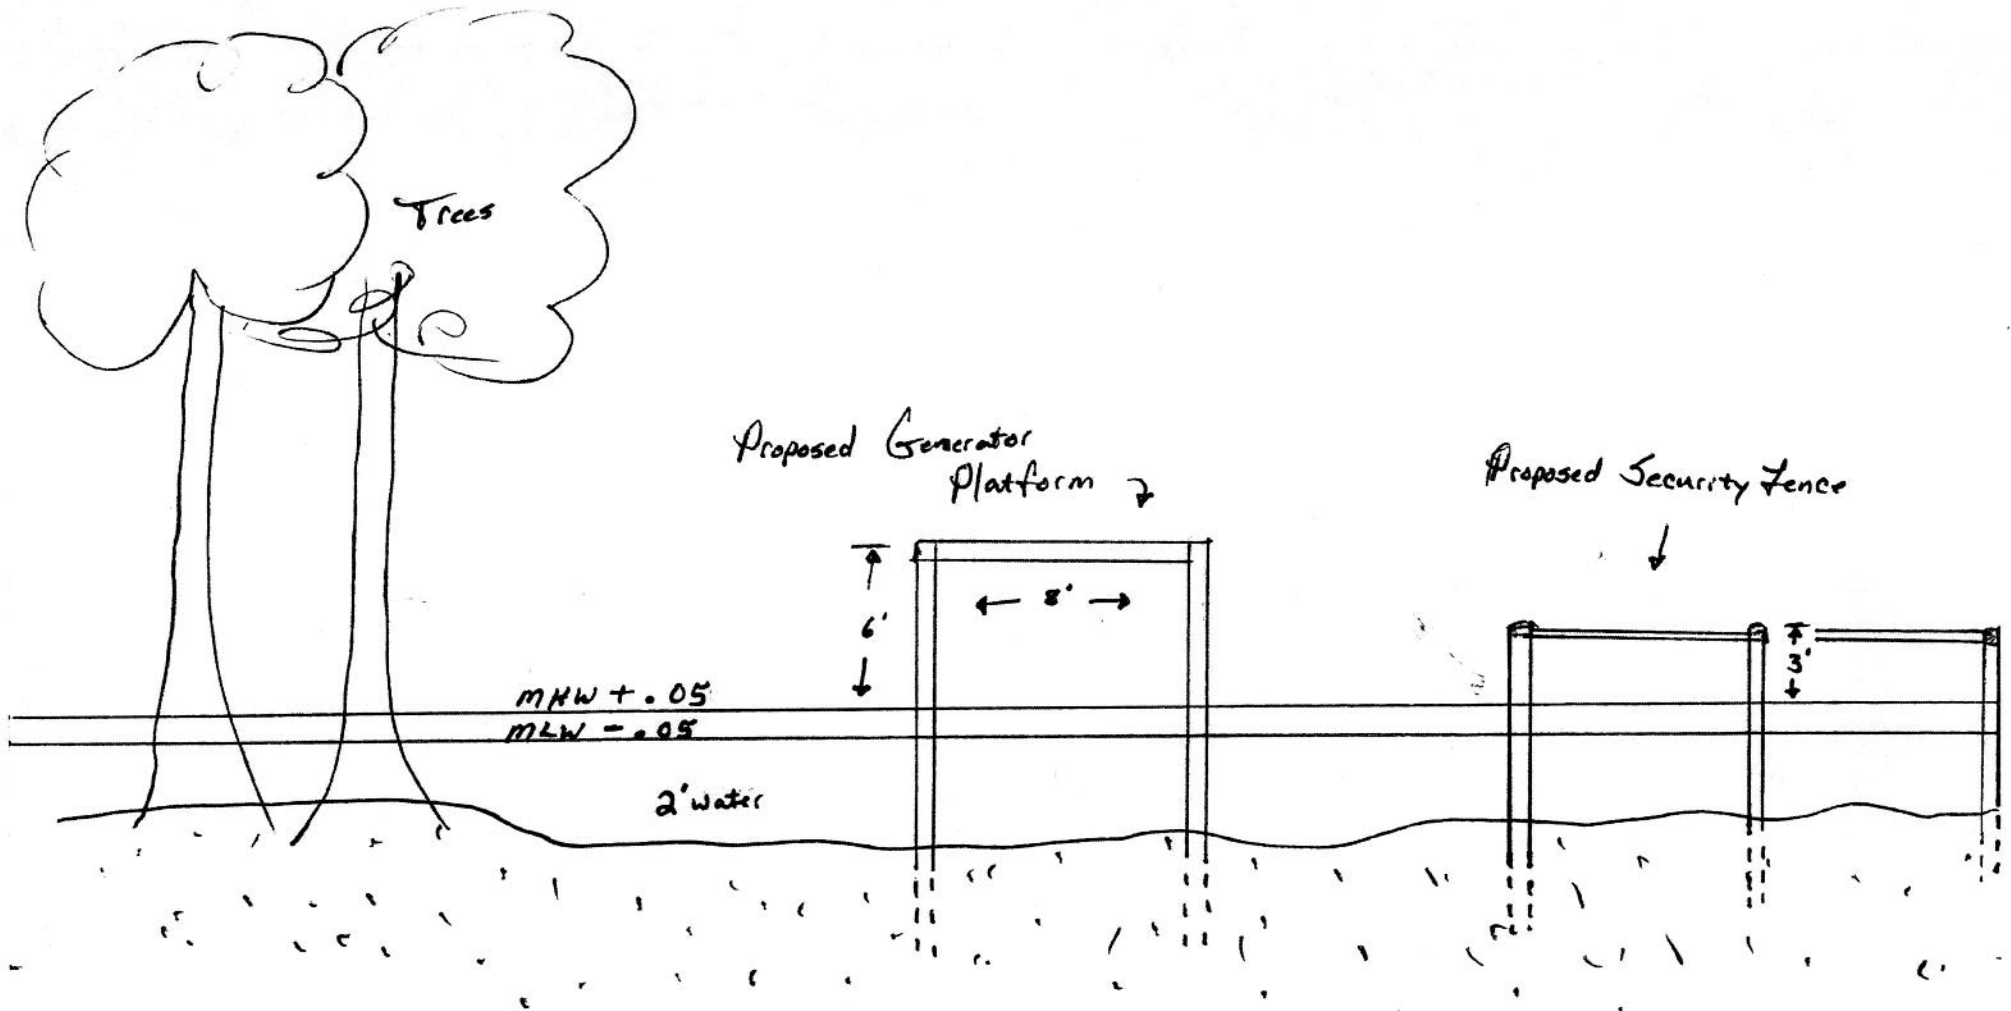 Trees
Proposed Generator
Platform
Proposed Security Fence
8'
6'
3'
MHW + .05
MLW - .05
2' water